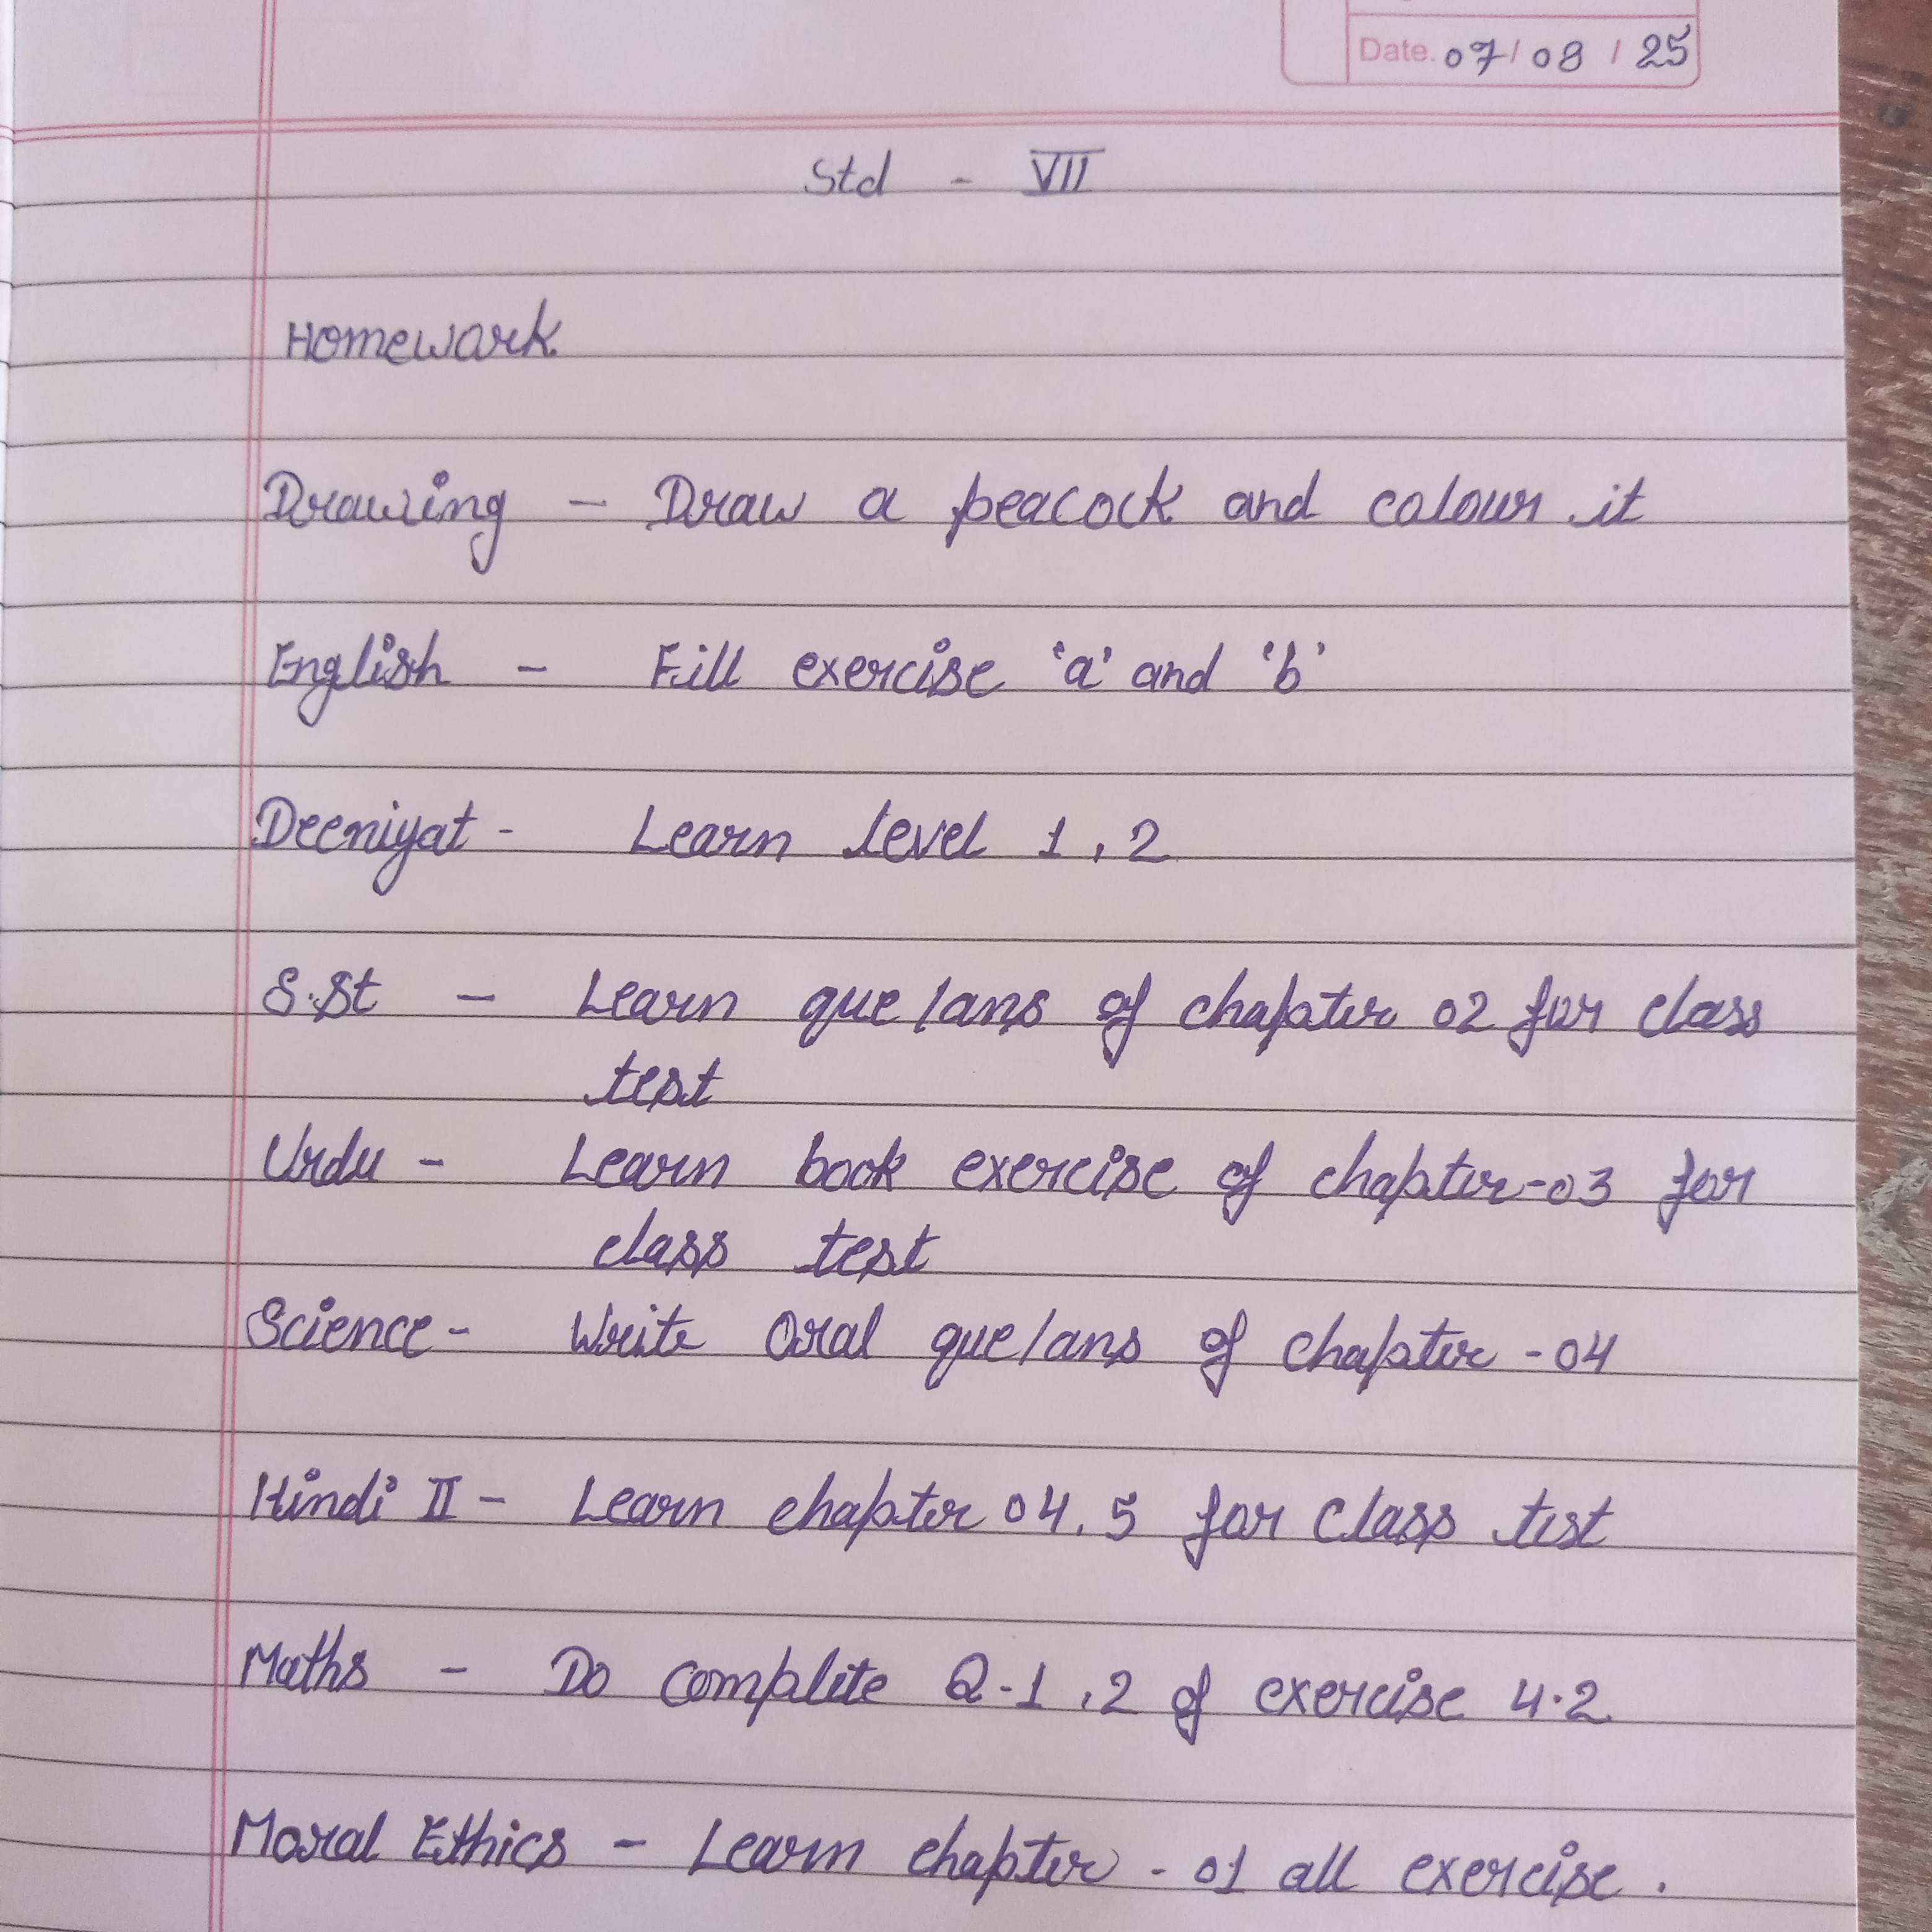 Date. 07/08/25
Std - VII
Homewark
Drawing - Draw a peacock and colour it
English - Fill exercise 'a' and 'b'
Deeniyat - Learn level 1, 2
S.St - Learn que/ans of chapter 02 for class
test
Urdu - Learn book exercise of chapter-03 for
class test
Science - Write Oral que/ans of chapter -04
Hindi II - Learn chapter 04, 5 for Class test
Maths - Do complete Q-1, 2 of exercise 4.2
Moral Ethics - Learn chapter - 01 all exercise.